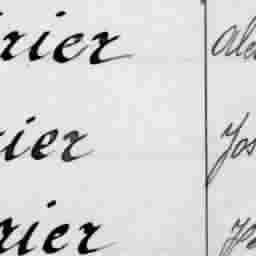 rier ale
rier Jos
rier